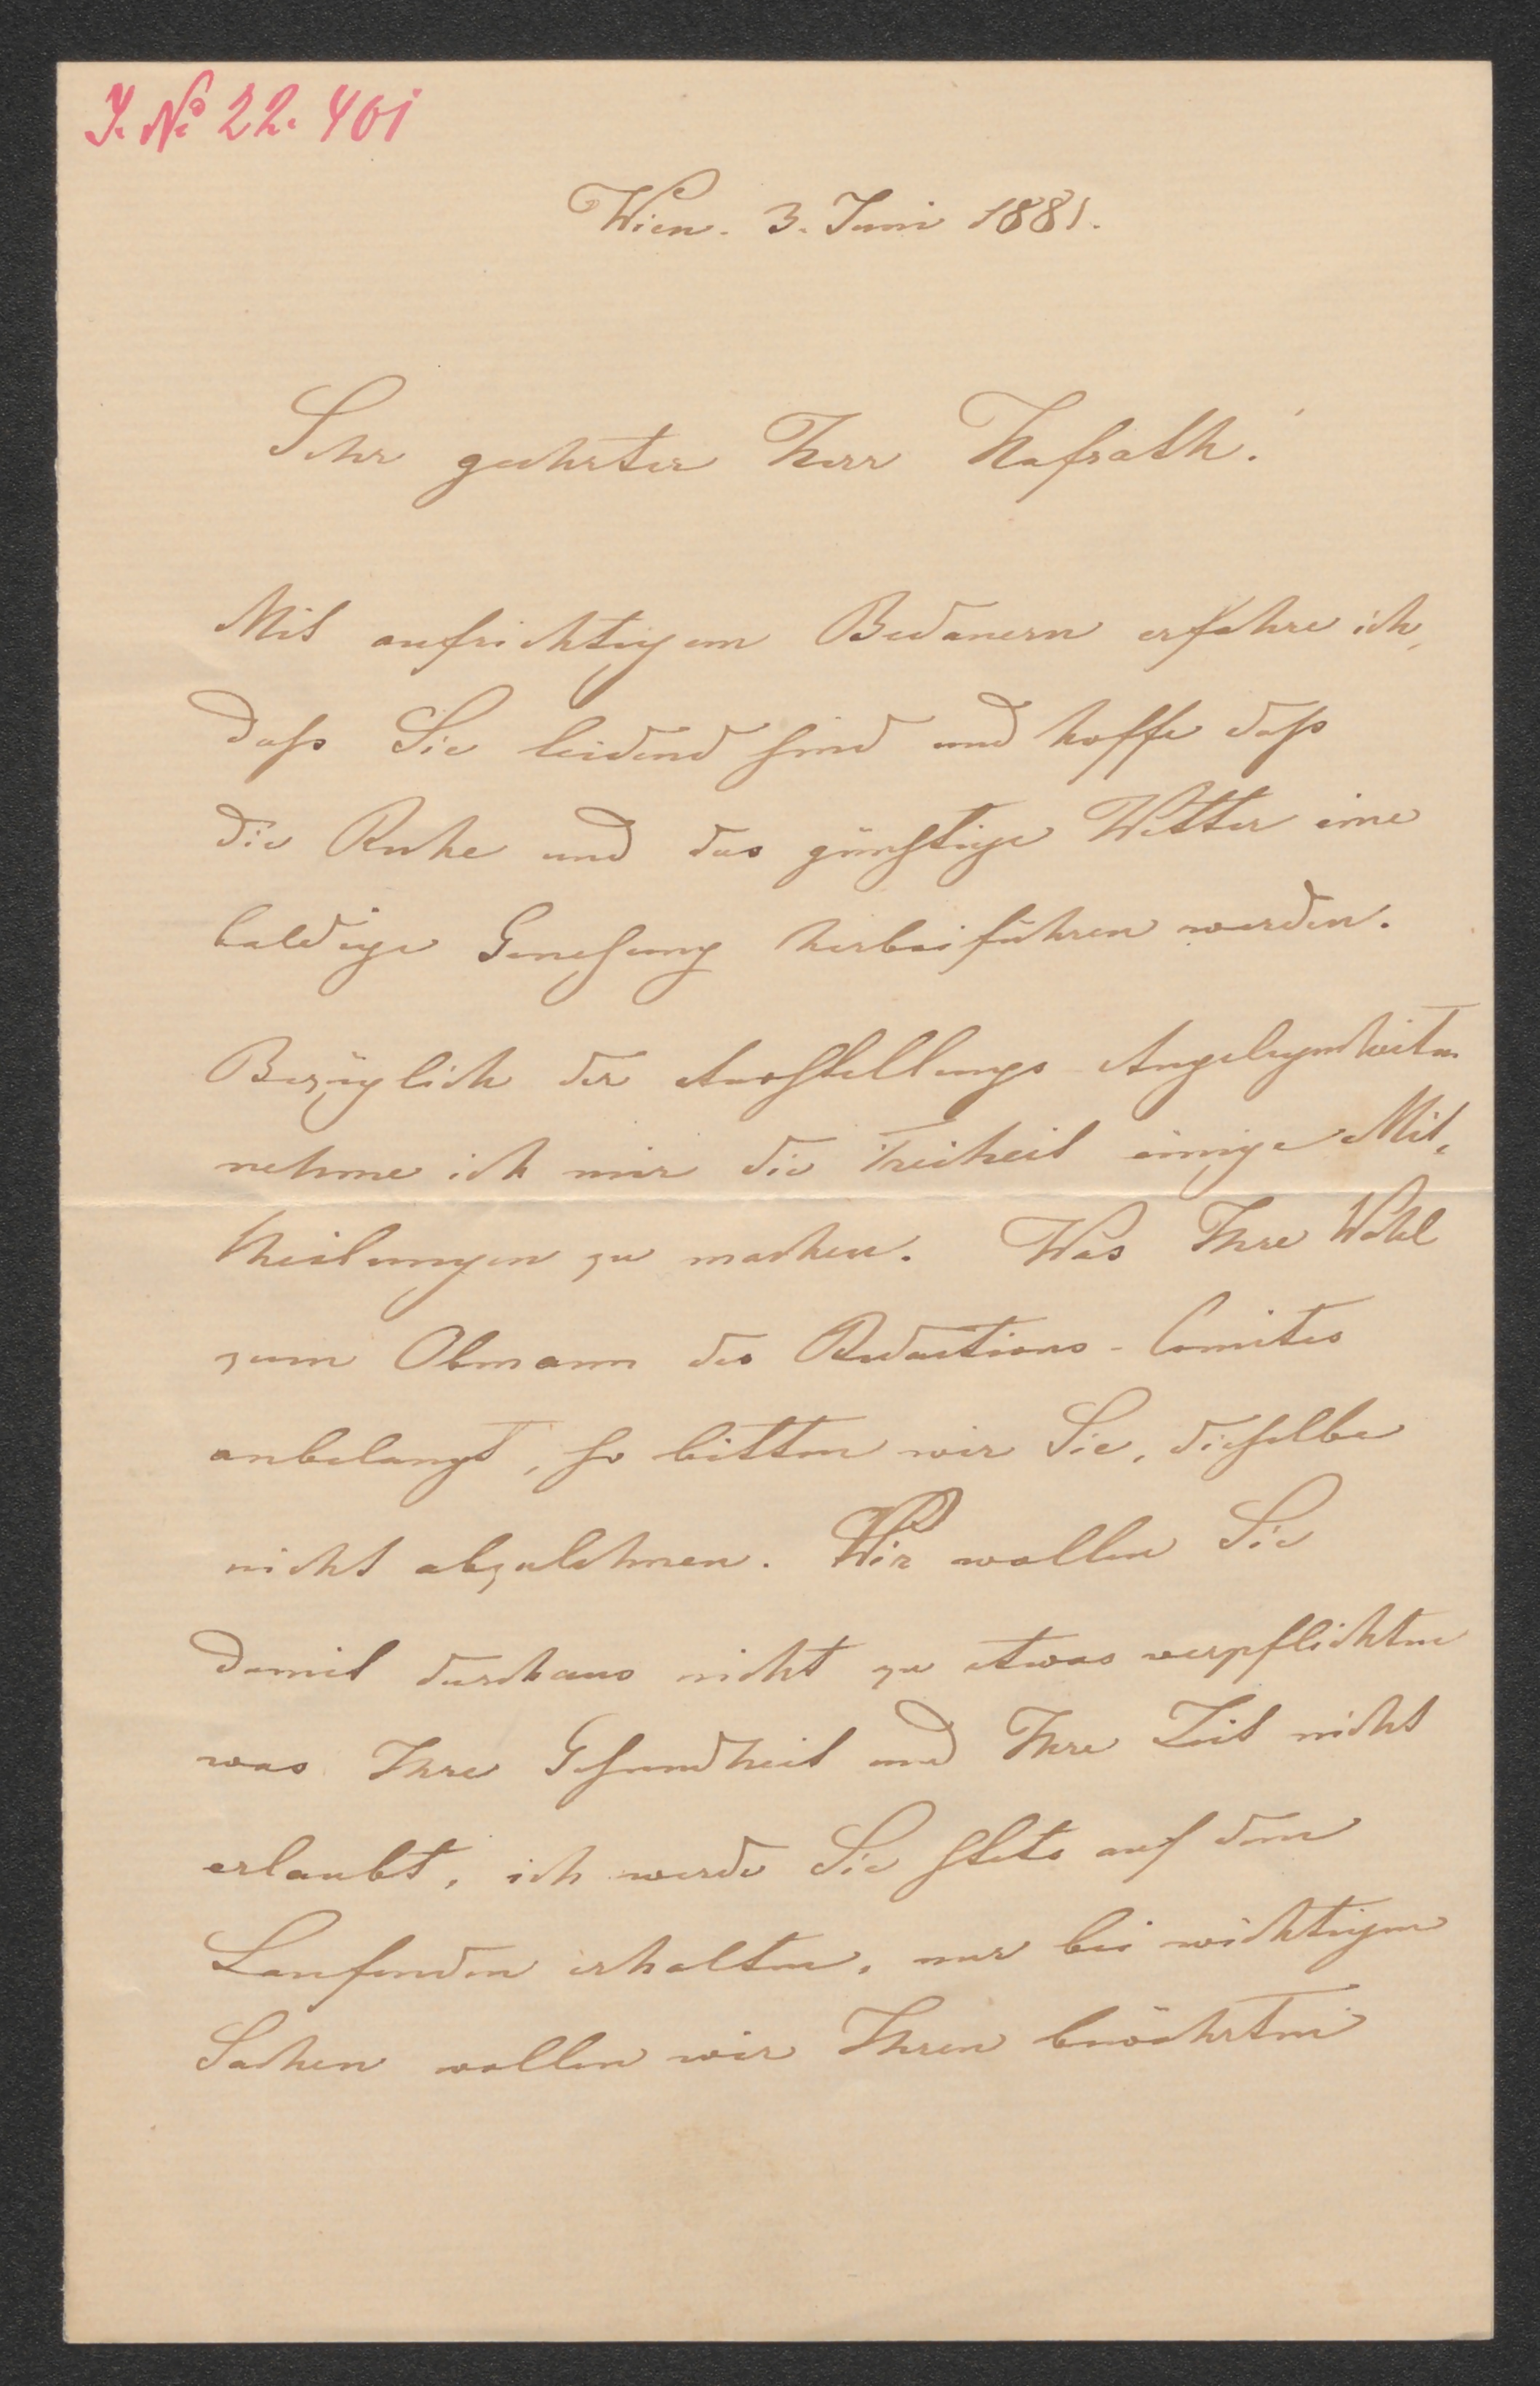 J. No 22. 401
Wien. 3. Juni 1881.
Sehr geehrter Herr Hofrath!
Mit aufrichtigem Bedauern erfahre ich,
daß Sie leidend sind und hoffe daß
die Ruhe und das günstige Wetter eine
baldige Genesung herbeiführen werden.
Bezüglich der Ausstellungs-Angelegenheiten
nehme ich mir die Freiheit einige Mit-
theilungen zu machen. Was Ihre Wahl
zum Obmann des Redactions-Comites
anbelangt, so bitten wir Sie, dieselbe
nicht abzulehnen. Wir wollen Sie
damit durchaus nicht zu etwas verpflichten
was Ihre Gesundheit und Ihre Zeit nicht
erlaubt, ich werde Sie stets auf dem
Laufenden erhalten, nur bei wichtigen
Sachen wollen wir Ihren bewährten